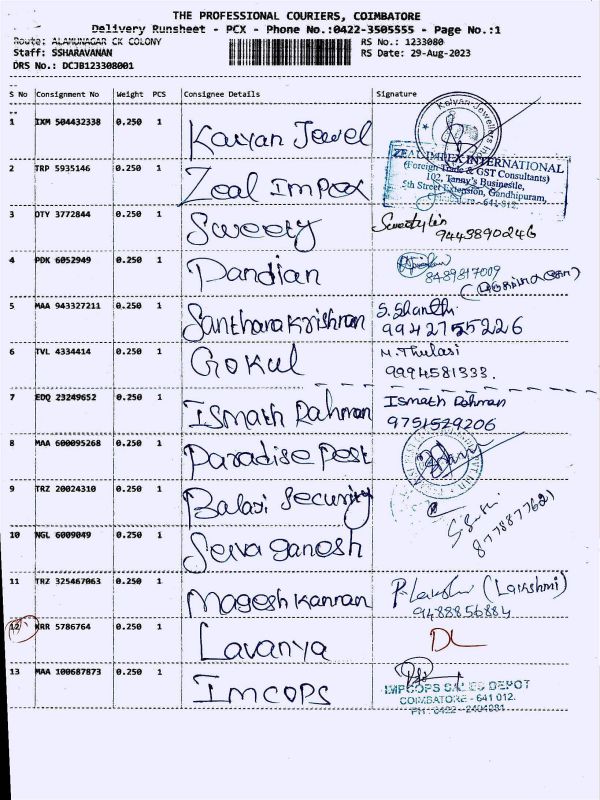 THE PROFESSIONAL COURIERS, COIMBATORE
Delivery Runsheet - PCX - Phone No.:0422-3505555 - Page No.:1
Route: ALAMUNAGAR CK COLONY RS No.: 1233080
Staff: SSHARAVANAN RS Date: 29-Aug-2023
DRS No.: DCJB123308001
S No Consignment No Weight PCS Consignee Details Signature
1 IXM 504432338 0.250 1 Kalyan Jewel
Kalyan Jewellers
2 TRP 5935146 0.250 1 Zeal Impex
ZEAL IMPEX INTERNATIONAL
(Foreign Trade & GST Consultants)
102, Tanny's Businestle,
5th Street Extension, Gandhipuram,
641 012.
3 OTY 3772844 0.250 1 Sweety
9443890246
4 PDK 6052949 0.250 1 Pandian
8489817009
5 MAA 943327211 0.250 1 Santhanakrishnan S. Shanthi
9942755226
6 TVL 4334414 0.250 1 Gokul M. Thulasi
9994581333.
7 EDQ 23249652 0.250 1 Ismath Rahman Ismath Rahman
9751529206
8 MAA 600095268 0.250 1 Paradise Post
9 TRZ 20024310 0.250 1 Balaji Security
8778877621
10 NGL 6009049 0.250 1 Selva ganesh
11 TRZ 325467063 0.250 1 Magesh kannan (Lakshmi)
9488856884
12 KRR 5786764 0.250 1 Lavanya DL
13 MAA 100687873 0.250 1 Imcops
IMPCOPS SALES DEPOT
COIMBATORE - 641 012.
PH : 0422 - 2494281